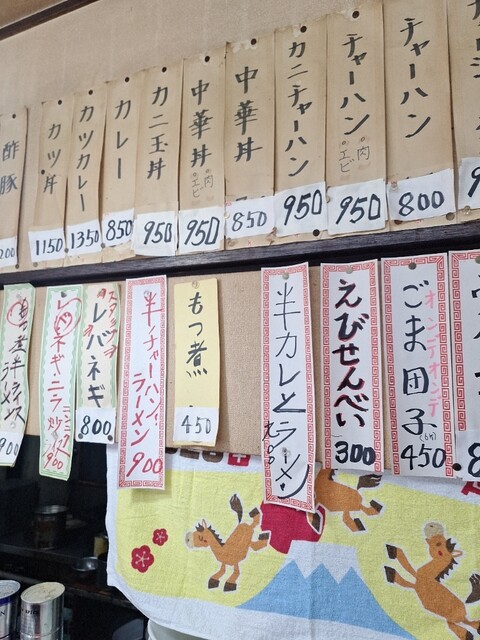 チャーハン
800
チャーハン
肉
エビ
950
カニチャーハン
950
中華丼
850
中華丼
肉
エビ
950
カニ玉丼
950
カレー
850
カツカレー
1350
カツ丼
1150
酢豚
ごま団子
450
えびせんべい
300
半カレーとラーメン
900
もつ煮
450
半チャーハン、
ラーメン
900
レバネギ
800
ネギニラ
900
900